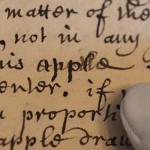 matter of the
, not in any
his apple
center. if
proporti
apple draw